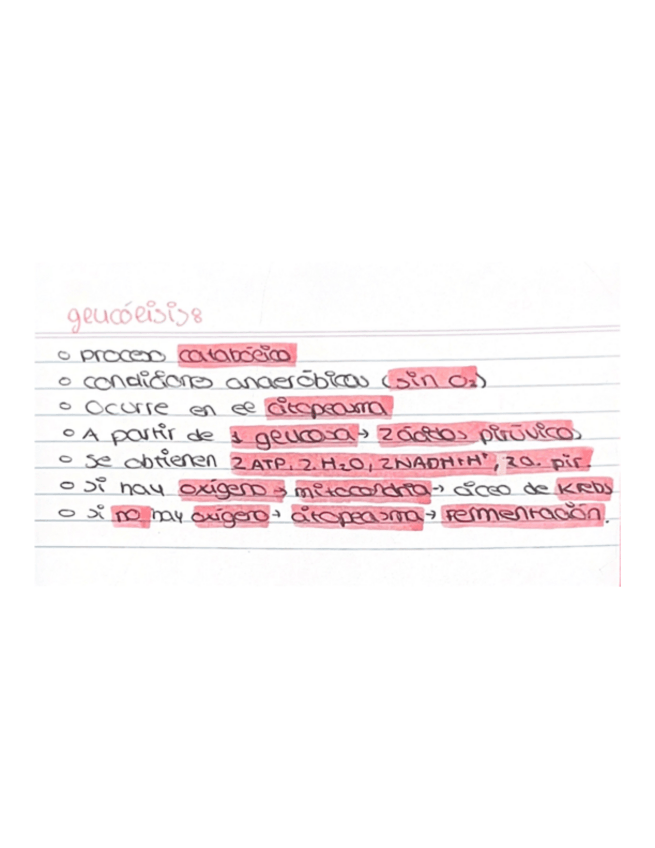 glucólisis:
o proceso catabólico
o condiciones anaeróbicas (sin O₂)
o Ocurre en el citoplasma
o A partir de 1 glucosa → 2 ácidos pirúvicos
o se obtienen 2 ATP, 2 H₂O, 2 NADH+H⁺, 2 a. pir.
o si hay oxígeno → mitocondria → ciclo de Krebs
o si no hay oxígeno → citoplasma → fermentación.